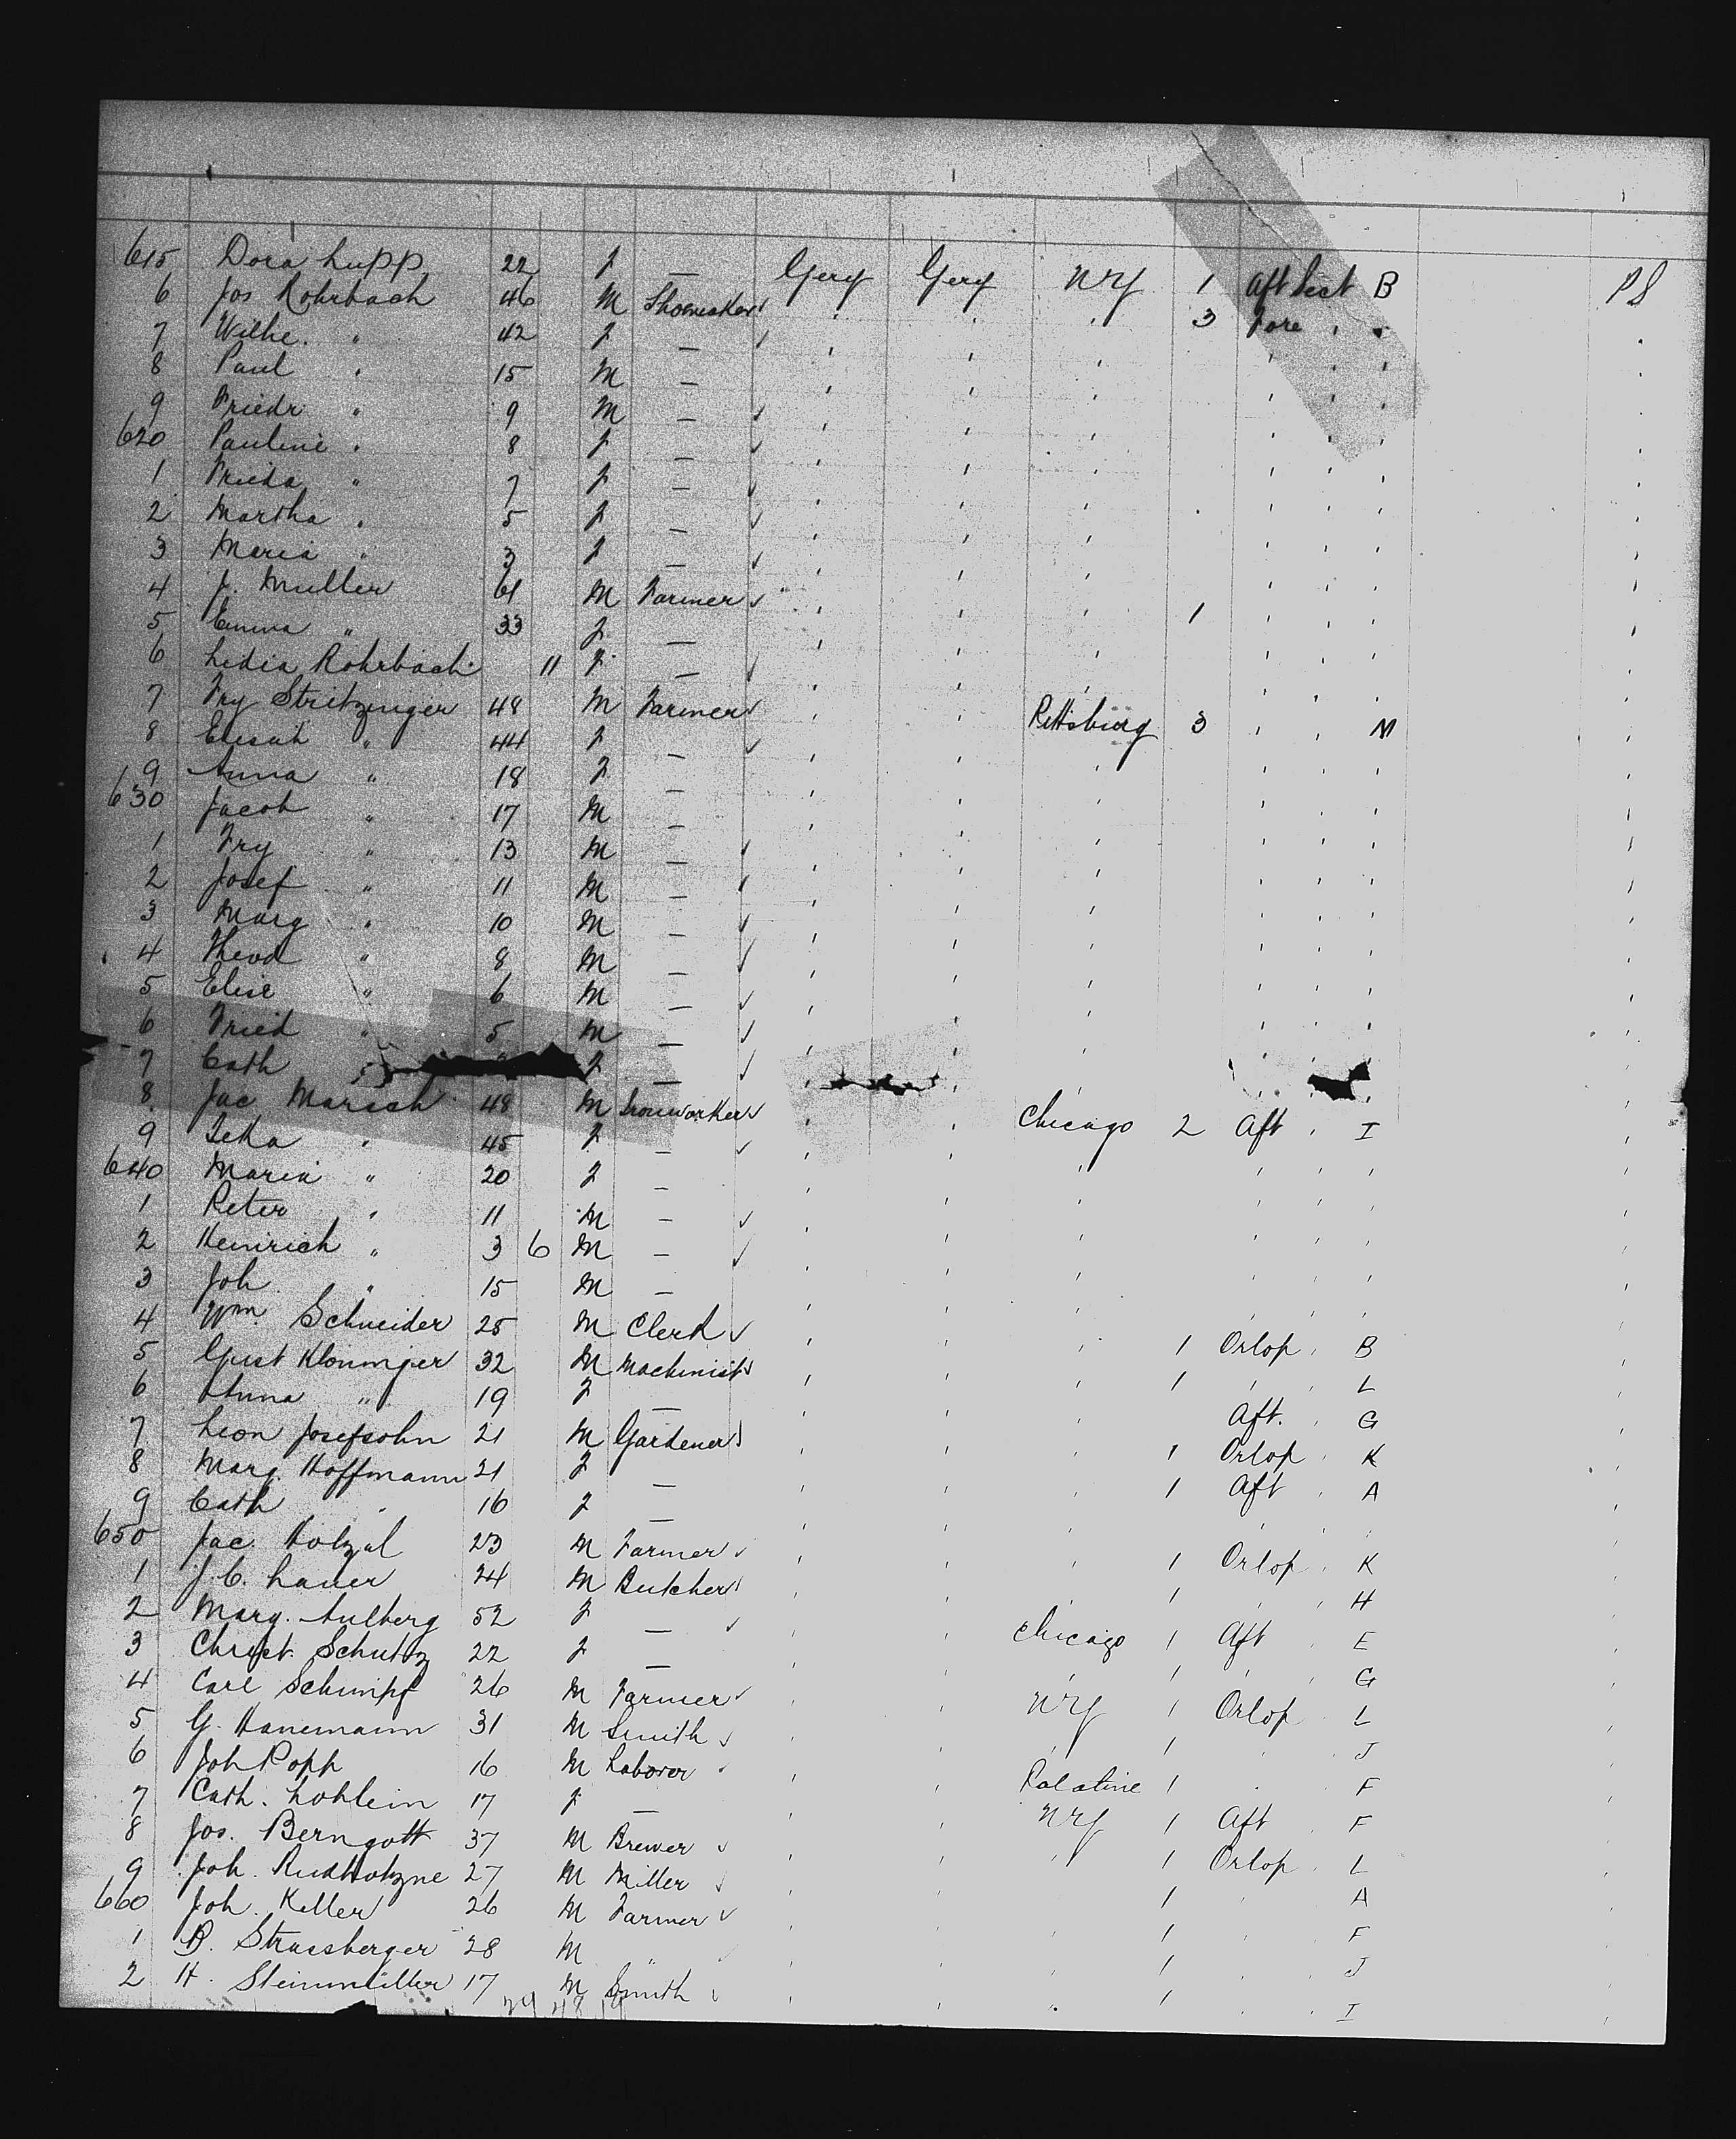 615 Dora Lupp 22 f — Gery Gery NY 1 Aft Sect B PS
6 Jos Rohrbach 46 M Shoemaker ' ' ' 3 Fore ' '
7 Wilhe. " 42 f —
8 Paul " 15 M —
9 Friedr " 9 M —
620 Pauline " 8 f —
1 Frieda " 7 f —
2 Martha " 5 f —
3 Maria " 3 f —
4 J. Muller 61 M Farmer
5 Emma " 33 f — 1
6 Lidia Rohrbach 11 f —
7 Fry Stritzinger 48 M Farmer Pittsburg 3 M
8 Elisah " 44 f —
9 Anna " 18 f —
630 Jacob " 17 M —
1 Fry " 13 M —
2 Josef " 11 M —
3 Marg " 10 M —
4 Theod " 8 M —
5 Elise " 6 M —
6 Fried " 5 M —
7 Cath f —
8 Jac Marsch 48 M Ironworker Chicago 2 Aft ' I
9 Leka " 45 f —
640 Maria " 20 f —
1 Peter " 11 M —
2 Heinrich " 3 6 M —
3 Joh " 15 M —
4 Wm. Schneider 25 M Clerk 1 Orlop ' B
5 Gust Klouniger 32 M Machinist 1 ' L
6 Anna " 19 f — Aft. G
7 Leon Josefsohn 21 M Gardener 1 Orlop ' K
8 Marg. Hoffmann 21 f — 1 Aft ' A
9 Cath " 16 f —
650 Jac. Hotzel 23 M Farmer 1 Orlop ' K
1 J. C. Lauer 24 M Butcher 1 ' H
2 Marg. Aulberg 52 f — Chicago 1 Aft E
3 Christ. Schultz 22 f — 1 G
4 Carl Schimpf 26 M Farmer NY 1 Orlop L
5 G. Hanemann 31 M Smith 1 J
6 Joh Popp 16 M Laborer Palatine 1 F
7 Cath. Lohlein 17 f — NY 1 Aft F
8 Jos. Berngott 37 M Brewer 1 Orlop L
9 Joh. 27 M Miller 1 A
660 Joh. Keller 26 M Farmer 1 F
1 B. Strassberger 28 M " 1 J
2 H. Steinmüller 17 M Smith 1 I